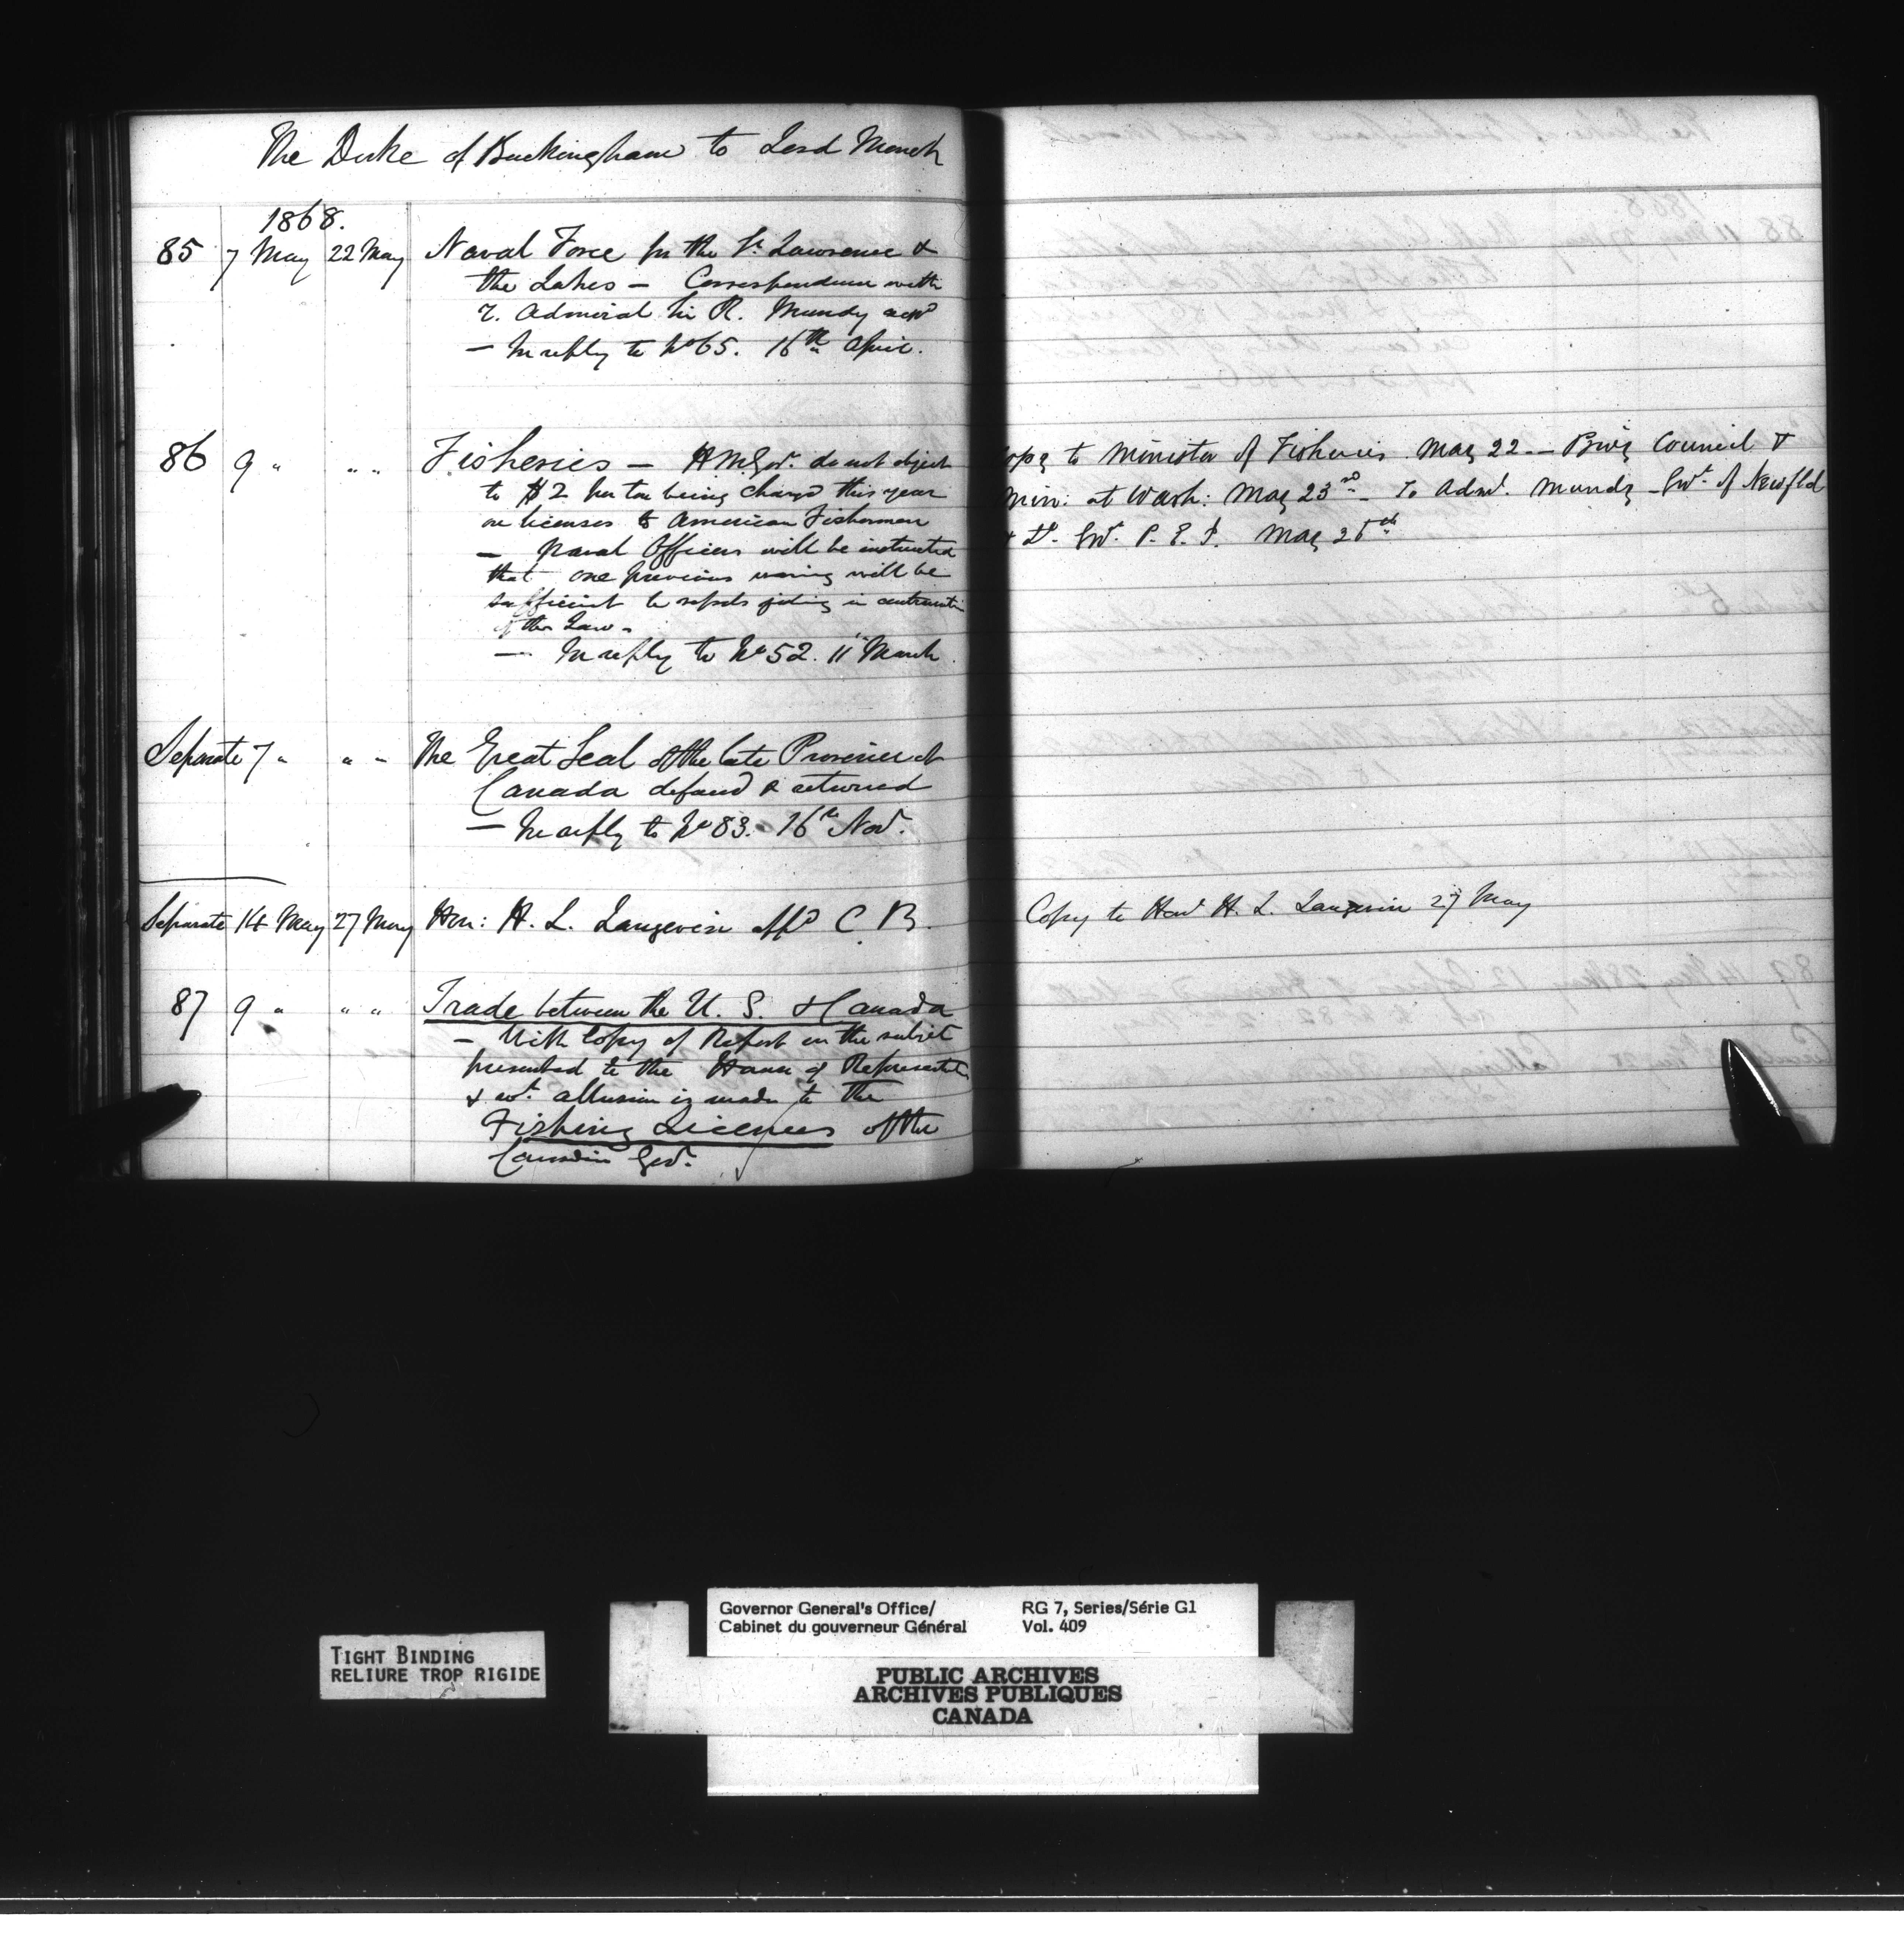 The Duke of Buckingham to Lord Monck
1868.
85 7 May 22 May Naval Force for the St Lawrence &
the Lakes — Correspondence with
V. Admiral Sir R. Mundy
— In reply to No 65. 16th April.
86 9 " " " Fisheries — H M Govt. do not object
to $2 per ton being chargd this year
on licenses to American Fishermen
— Naval Officers will be instructed
that one previous warning will be
sufficient to vessels fishing in
of the Law.
— In reply to No 52. 11 March.
Copy to Minister of Fisheries. May 22 — Privy Council &
Min: at Wash: May 23rd — To Adml. Mundy — Govr. of Newfld
& Lt. Govr. P. E. I. May 25th
Separate 7 " " " The Great Seal of the late Province of
Canada defacd & returned
— In reply to No 83. 16th Nov.
Separate 14 May 27 May Hon: H. L. Langevin appd C. B.
Copy to Honl H. L. Langevin 27 May
87 9 " " " Trade between the U. S. & Canada
— With Copy of Report on the subjet
presented to the House of Representat
& wh. allusion is made to the
Fishing Licenses of the
Canadian Govt.
TIGHT BINDING
RELIURE TROP RIGIDE
Governor General's Office/ RG 7, Series/Série G1
Cabinet du gouverneur Général Vol. 409
PUBLIC ARCHIVES
ARCHIVES PUBLIQUES
CANADA